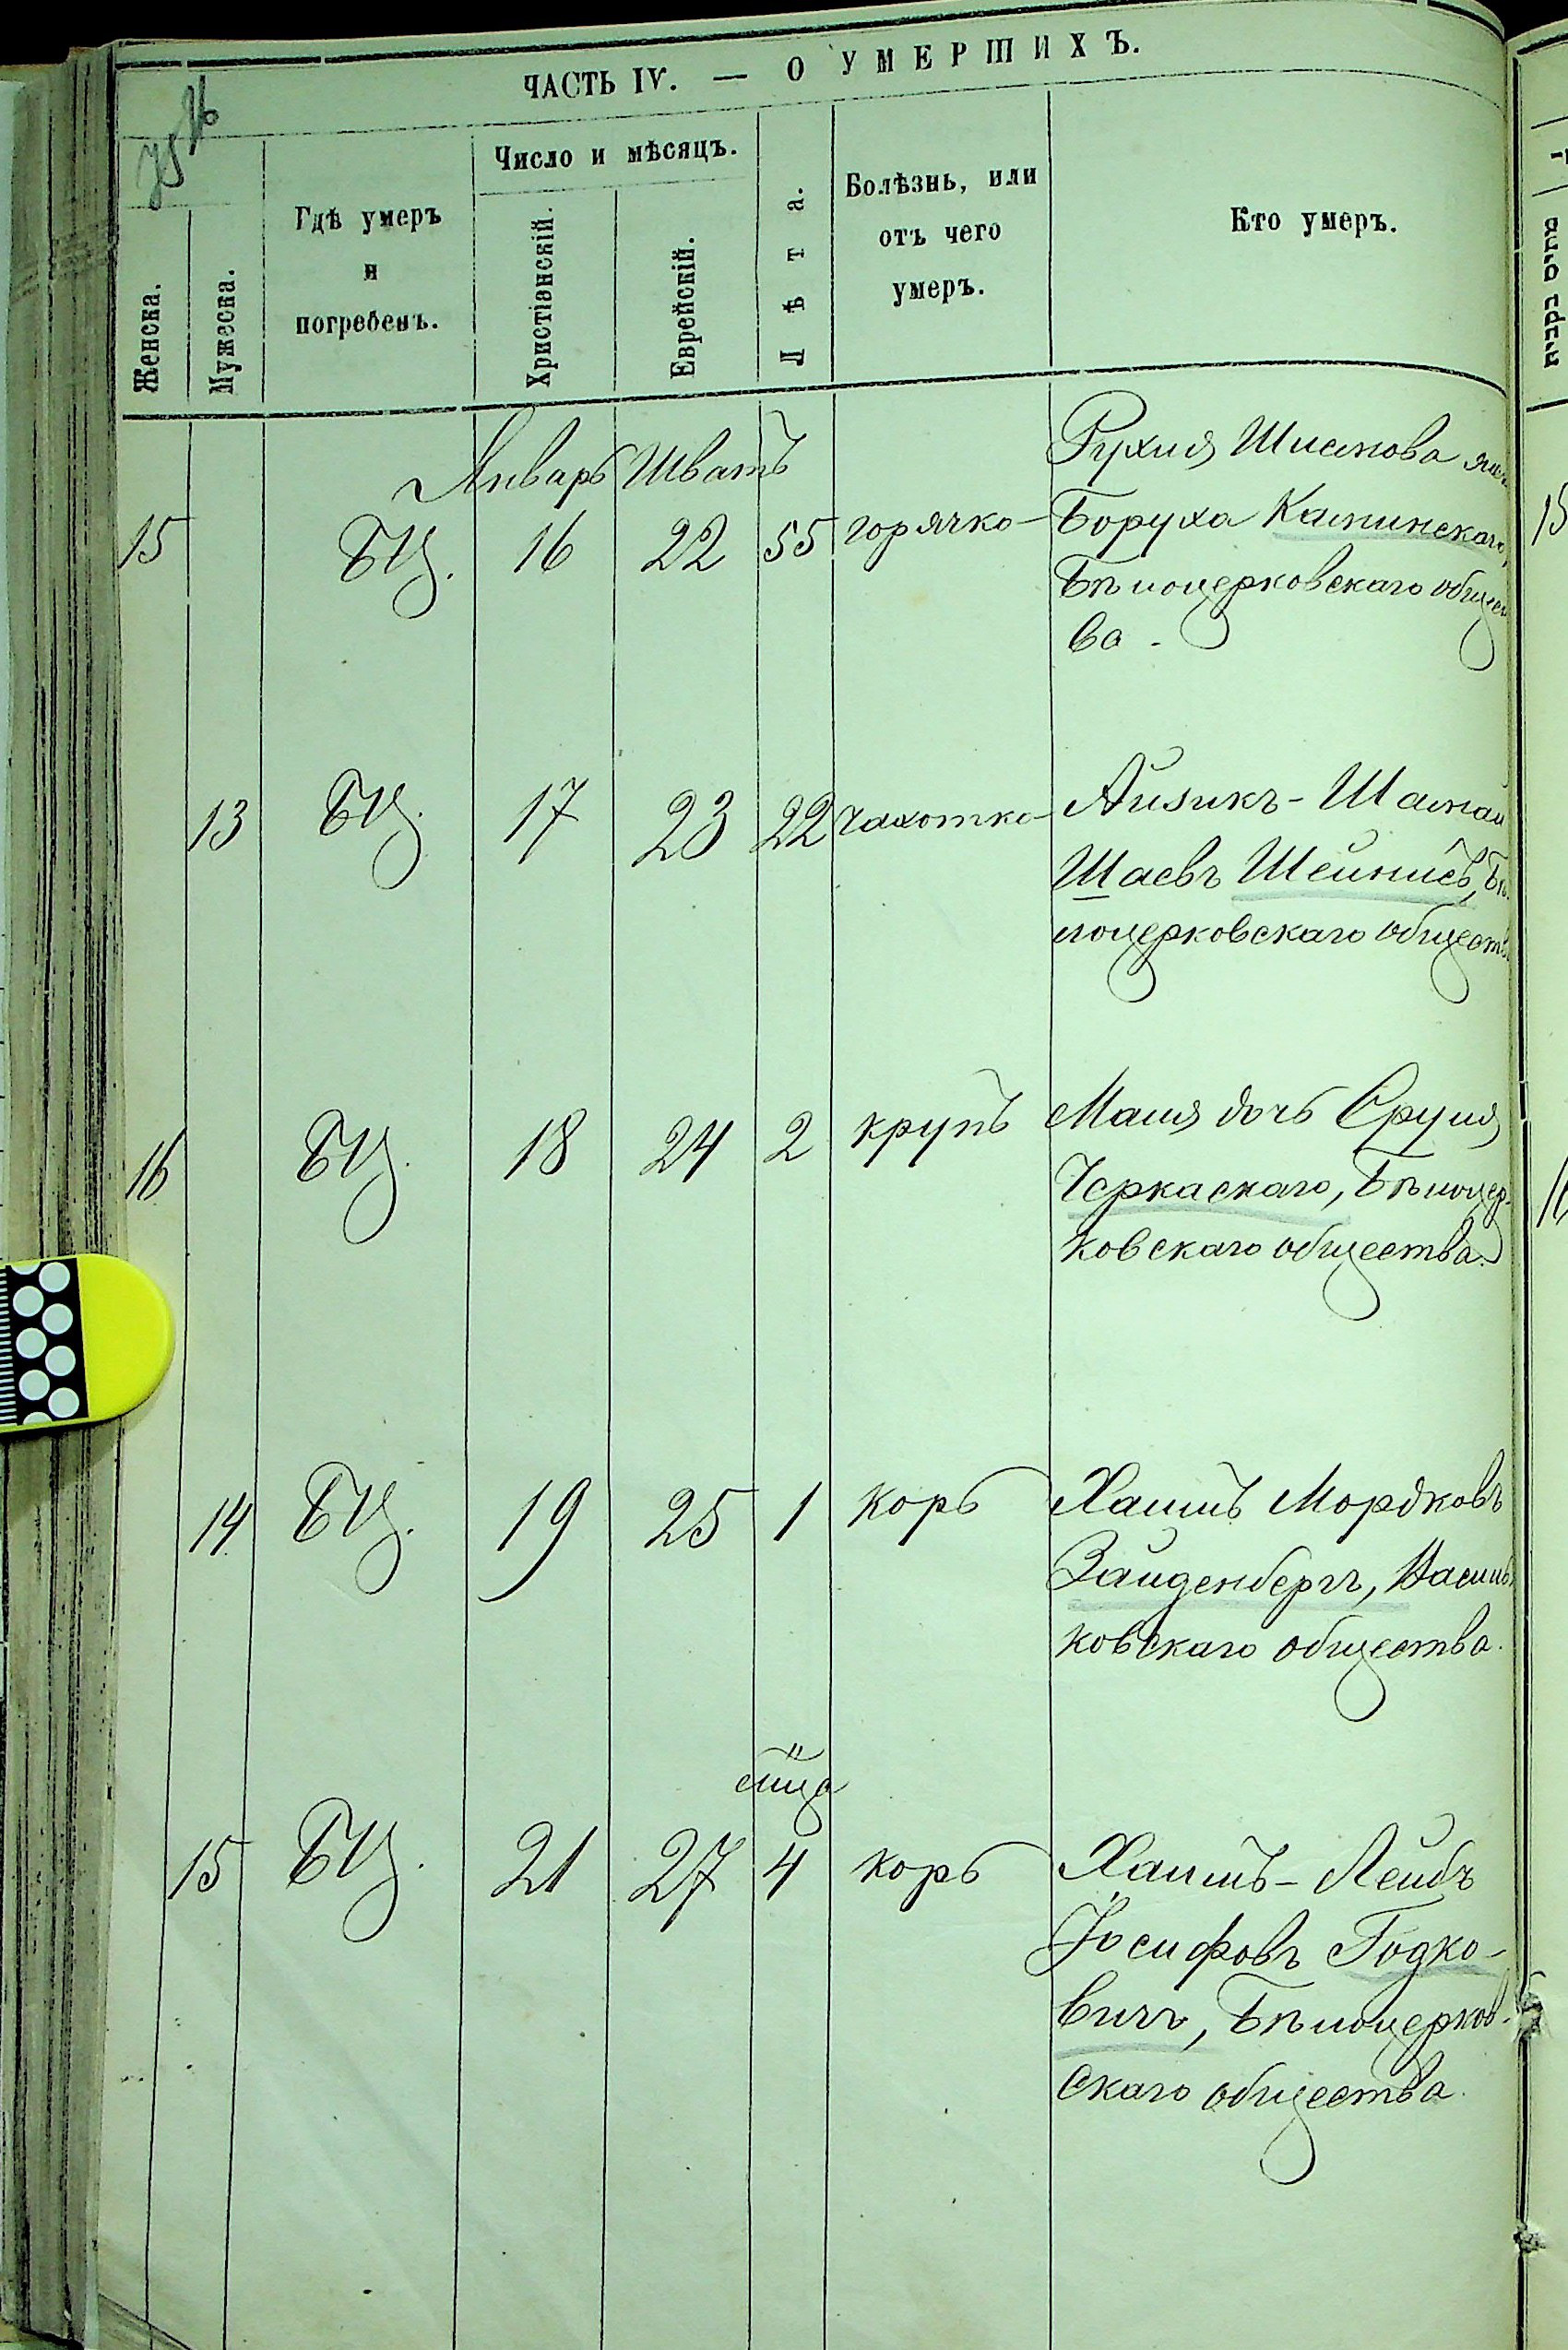 ЧАСТЬ IV. — О УМЕРШИХЪ.
Женска.
Мужеска.
Гдѣ умеръ
и
погребенъ.
Число и мѣсяцъ.
Христіянскій.
Еврейскій.
Лѣта.
Болѣзнь, или
отъ чего
умеръ.
Кто умеръ.
Январь Шватъ
15 БЦ. 16 22 55 горячко-
Рухля
Боруха Каминскаго,
Бѣлоцерковскаго общест
ва.
13 БЦ. 17 23 22 чахотко-
Айзикъ-Шамай
Шаевъ Шейнисъ, Бѣ
лоцерковскаго обществ
16 БЦ. 18 24 2 крупъ
Маля дочь Сруля
Черкаскаго, Бѣлоцер-
ковскаго общества.
14 БЦ. 19 25 1 корь
Хаимъ Мордковъ
Зайденбергъ, Василь
ковскаго общества.
мѣца
15 БЦ. 21 27 4 корь
Хаимъ-Лейбъ
Іосифовъ Годко-
вичъ, Бѣлоцерков-
скаго общества.
15